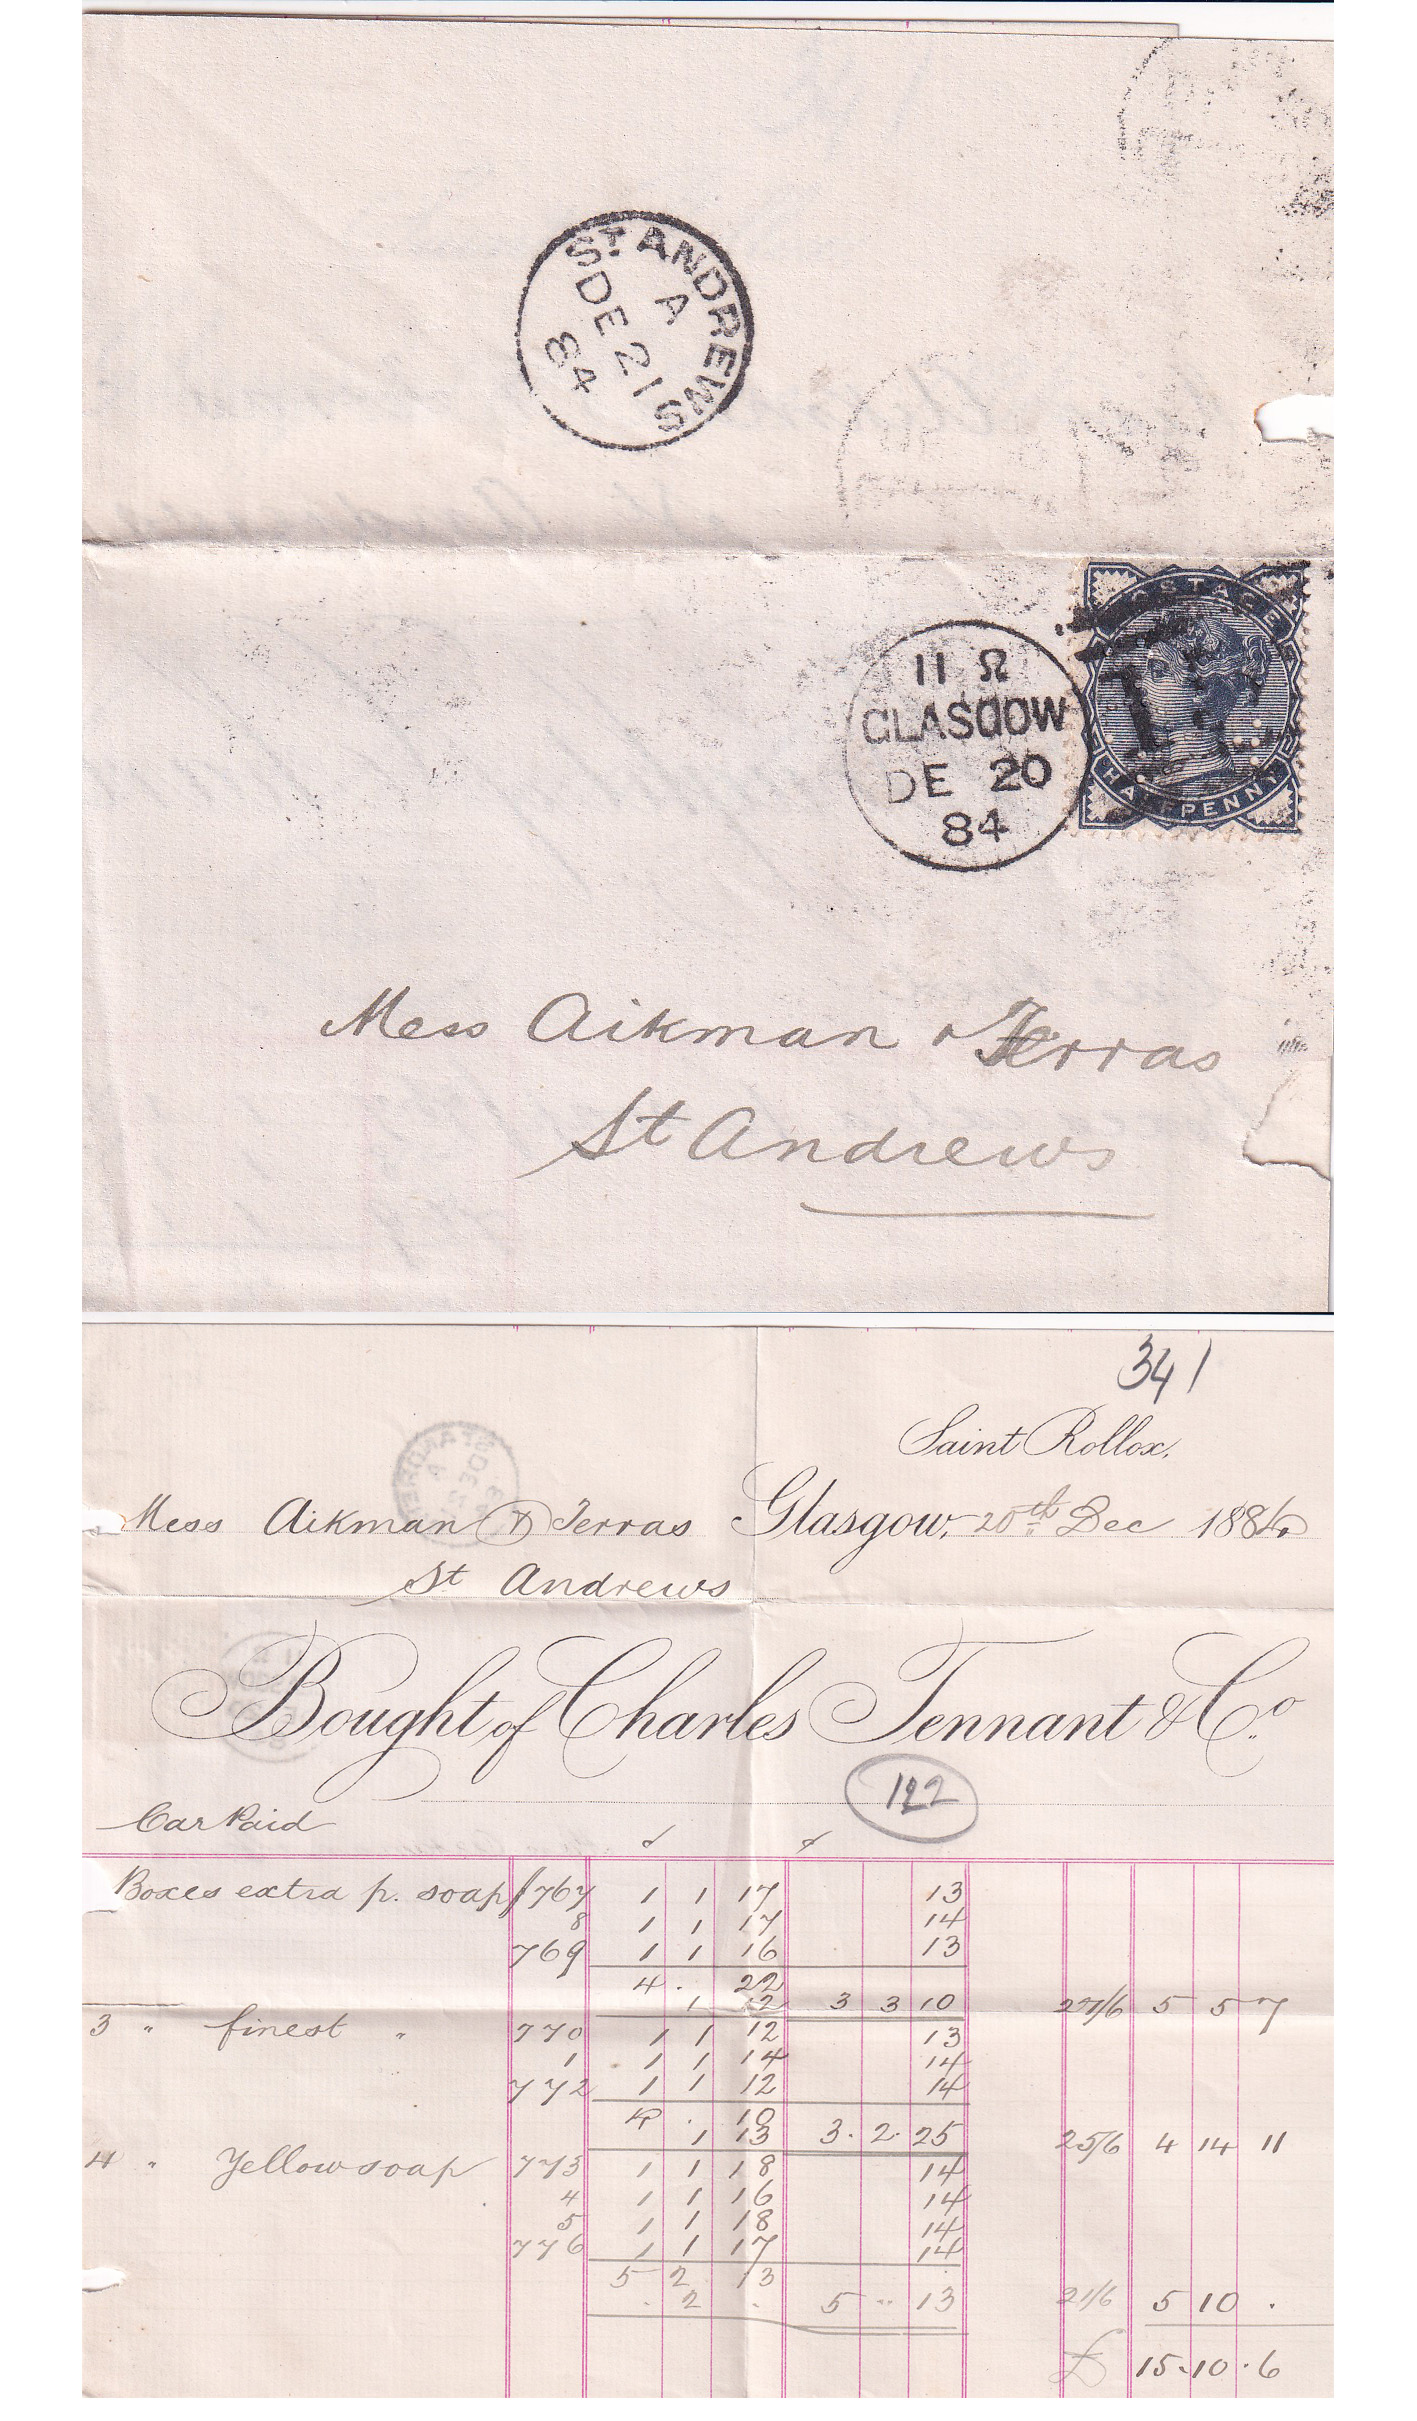 ST ANDREWS
A
DE 21
84
POSTAGE
HALFPENNY
11 Ω
GLASGOW
DE 20
84
Mess Aikman & Terras
St Andrews
341
Saint Rollox.
Mess Aikman & Terras Glasgow, 20th Dec 1884
St Andrews
Bought of Charles Tennant & Co.
122
Car Paid
Boxes extra p. soap 767 1 1 17 13
8 1 1 17 14
769 1 1 16 13
4 . 22
1 12 3 3 10 27/6 5 5 7
3 " finest " 770 1 1 12 13
1 1 1 14 14
772 1 1 12 14
4 . 10
1 13 3 . 2 . 25 25/6 4 14 11
4 " Yellow soap 773 1 1 18 14
4 1 1 16 14
5 1 1 18 14
776 1 1 17 14
5 2 13
. 2 . 5 " 13 21/6 5 10 .
£ 15 . 10 . 6